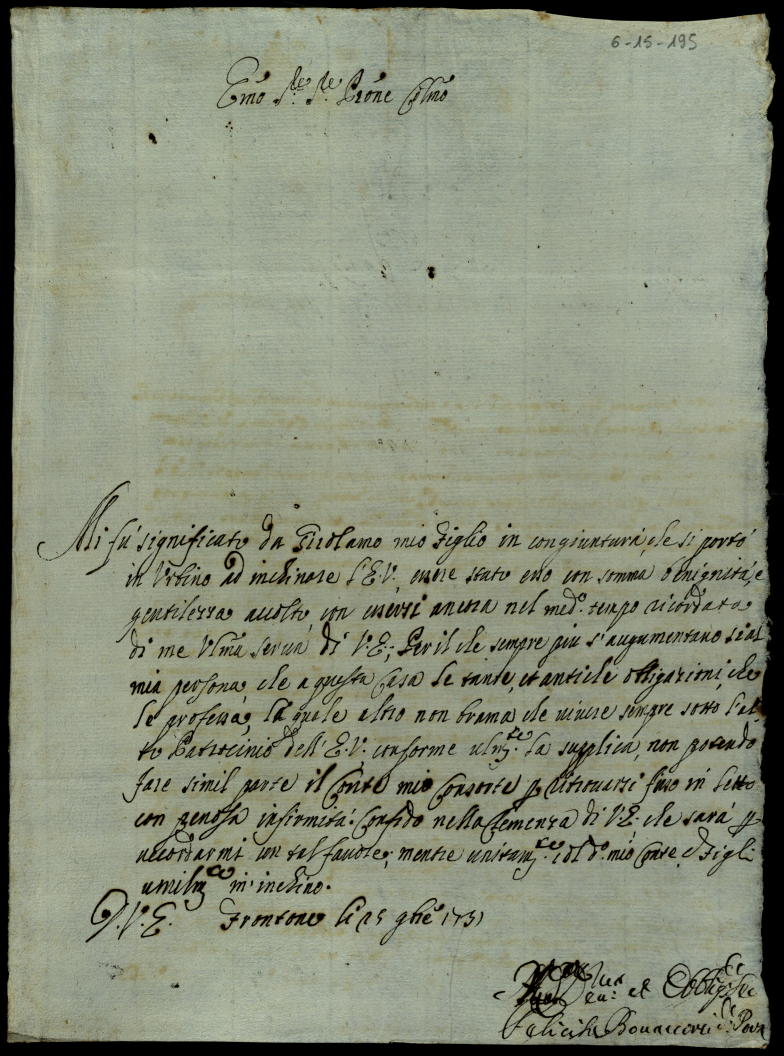 6-15-195
Emo Sre Sre Prone Colmo
Mi fú significato da Girolamo mio Figlio in congiuntura, che si portó
in Urbino ad inchinare l'E.V., essere stato esso con somma benignitá, e
gentilezza accolto, con essersi ancora nel medo. tempo ricordata
di me Ulma serva di V.E.; Per il che sempre piu s'augumentano si al
mia persona, che a questa Casa le tante, et antiche obligazioni, che
le professa, la quale altro non brama che vivere sempre sotto l'al
to Patrocinio dell'E.V. conforme ulmte. la supplica, non potendo
fare simil parte il Conte mio Consorte p ritrovarsi fuso in letto
con penosa infirmitá. Confido nella Clemenza di V.E. che sará p
accordarmi un tal favore; mentre unitamte. col do. mio Conte, e Figli
umilmte m'inchino.
D.V.E. Frontone li 25 gbre 1731
et Obbligma
Felicita Bonaccorsi